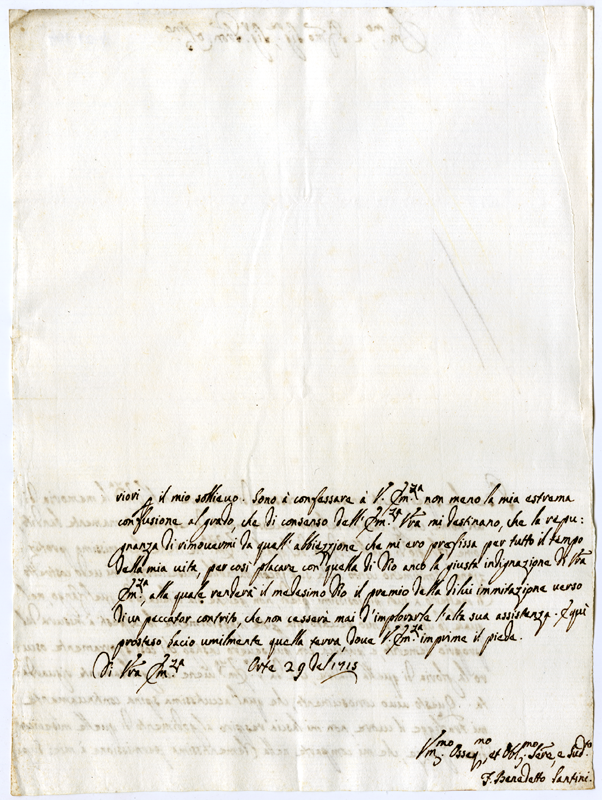 riori, il mio sollievo. Sono à confessare à V. Em.za non meno la mia estrema
confusione al grado, che di consenso dell'Em.za Vtra mi destinano, che la repu:
gnanza di rimovermi da quell'abbiezzione che mi ero prefissa per tutto il tempo
della mia vita per così placare con quella di Dio anco la giusta indignazione di Vtra
Em.za, alla quale renderà il medesimo Dio il premio della dilui immitazione verso
di un peccator contrito, che non cesserà mai d'implorarle l'alta sua assistenza. E quì
prosteso bacio umilmente quella terra, dove V. Em.za imprime il piede.
Di Vtra Em.za Orte 29 del 1715
Vm.mo Osseq.mo, et Obl.mo Serv.e, e Sud.to
F. Benedetto Santini.